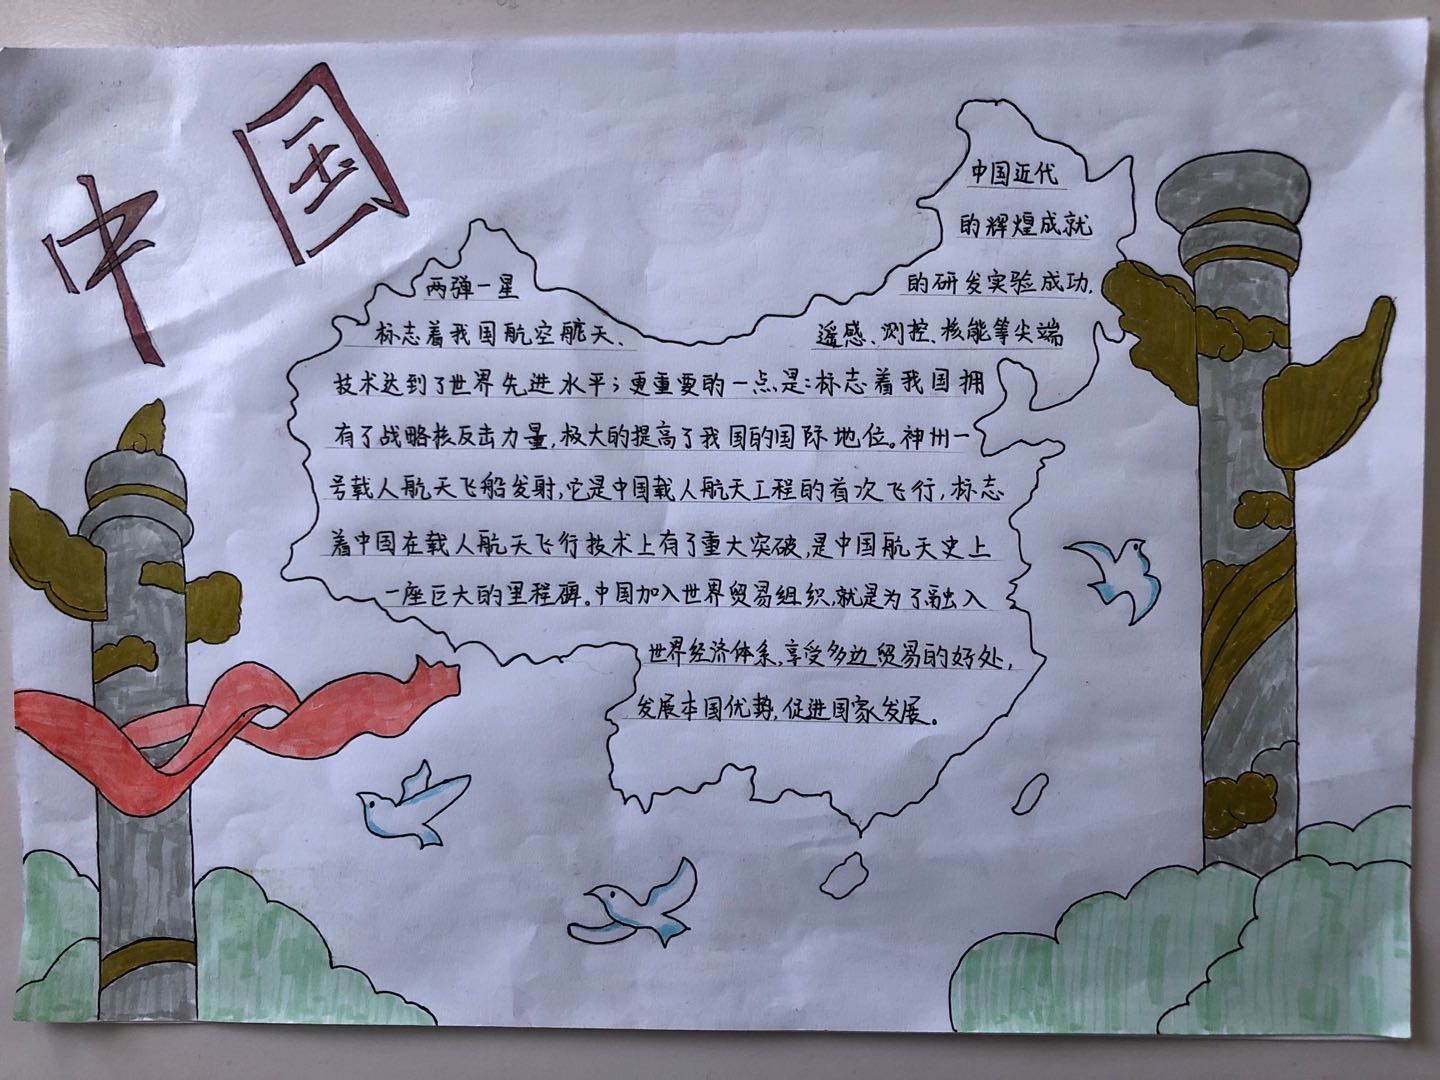 中国
中国近代
的辉煌成就
两弹一星 的研发实验成功,
标志着我国航空航天、 遥感、测控、核能等尖端
技术达到了世界先进水平;更重要的一点是:标志着我国拥
有了战略核反击力量,极大的提高了我国的国际地位。神州一
号载人航天飞船发射,它是中国载人航天工程的首次飞行,标志
着中国在载人航天飞行技术上有了重大突破,是中国航天史上
一座巨大的里程碑。中国加入世界贸易组织,就是为了融入
世界经济体系,享受多边贸易的好处,
发展本国优势,促进国家发展。